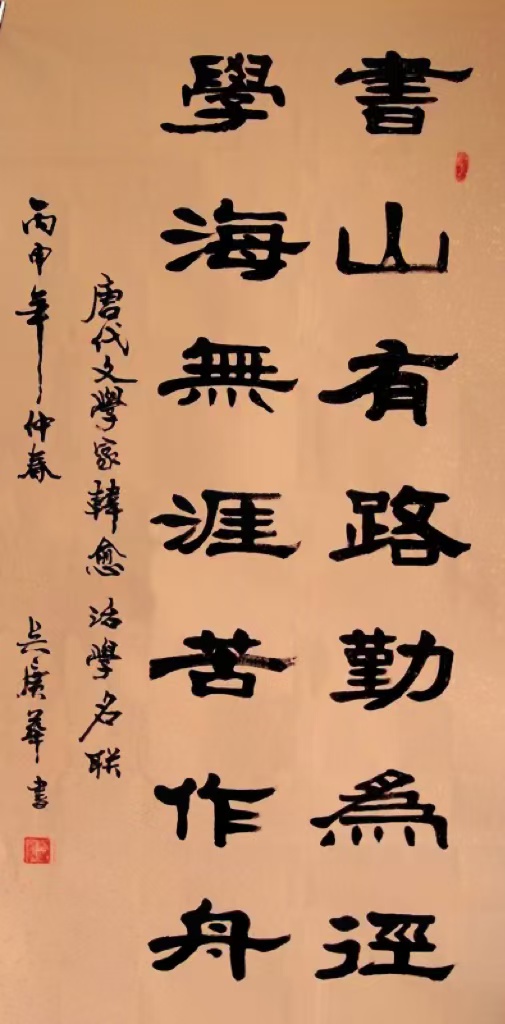 書山有路勤為徑
學海無涯苦作舟
唐代文學家韓愈治學名联
丙申年仲春 吴 華書